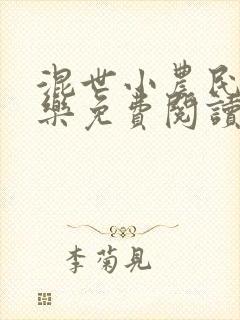 混世小農民
樂免費閱讀
李菊見